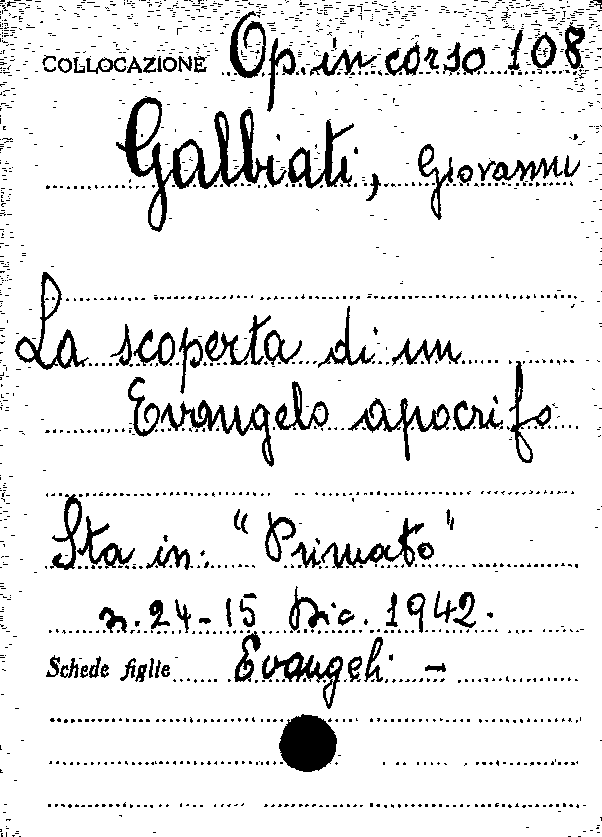 COLLOCAZIONE Op. in corso 108
Galbiati, Giovanni
La scoperta di un
Evangelo apocrifo
Sta in: "Primato"
n. 24-15 Dic. 1942.
Schede figlie Evangeli -